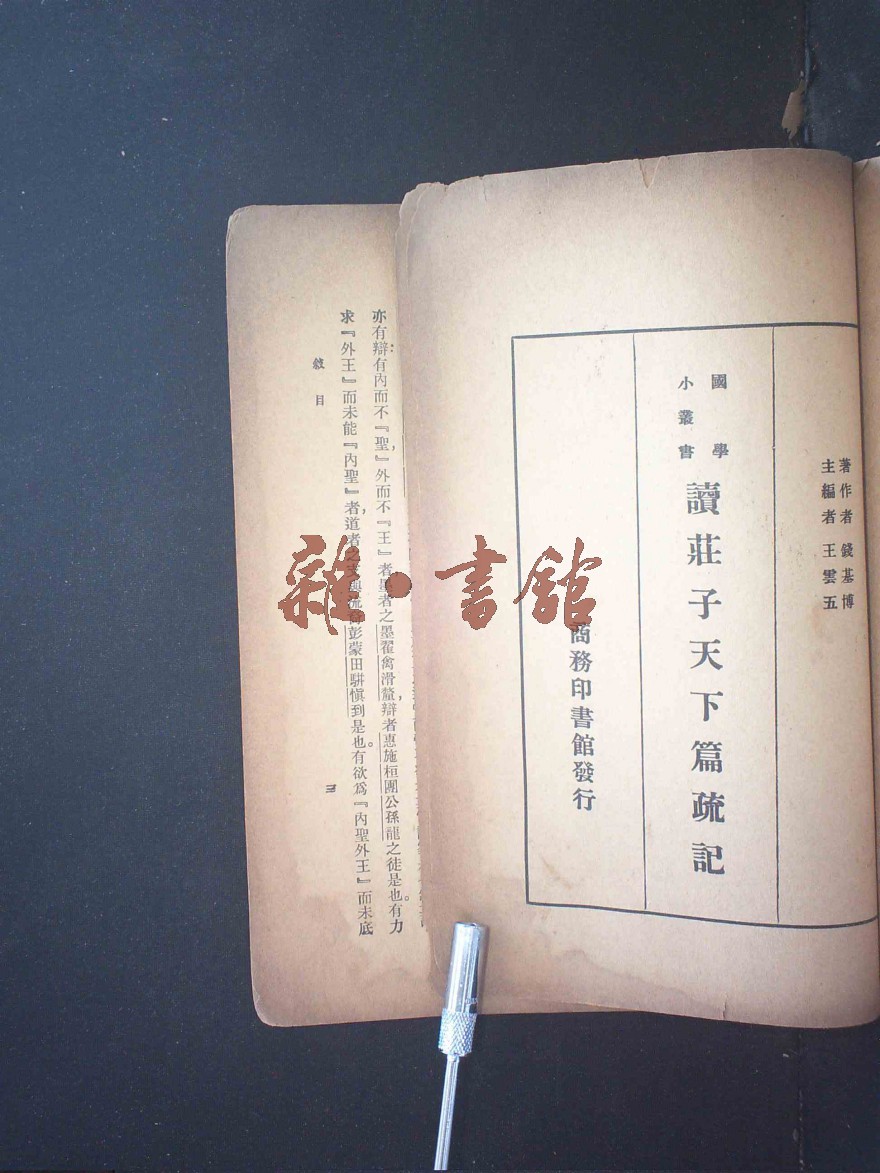 著作者 錢基博
主編者 王雲五
國學
小叢書
讀莊子天下篇疏記
商務印書館發行
亦有辯有內而不『聖』，外而不『王』者墨者之墨翟禽滑釐，辯者惠施桓團公孫龍之徒是也。有力
求『外王』而未能『內聖』者，道者之彭蒙田駢愼到是也。有欲爲『內聖外王』而未底
敘目
三
雜·書館